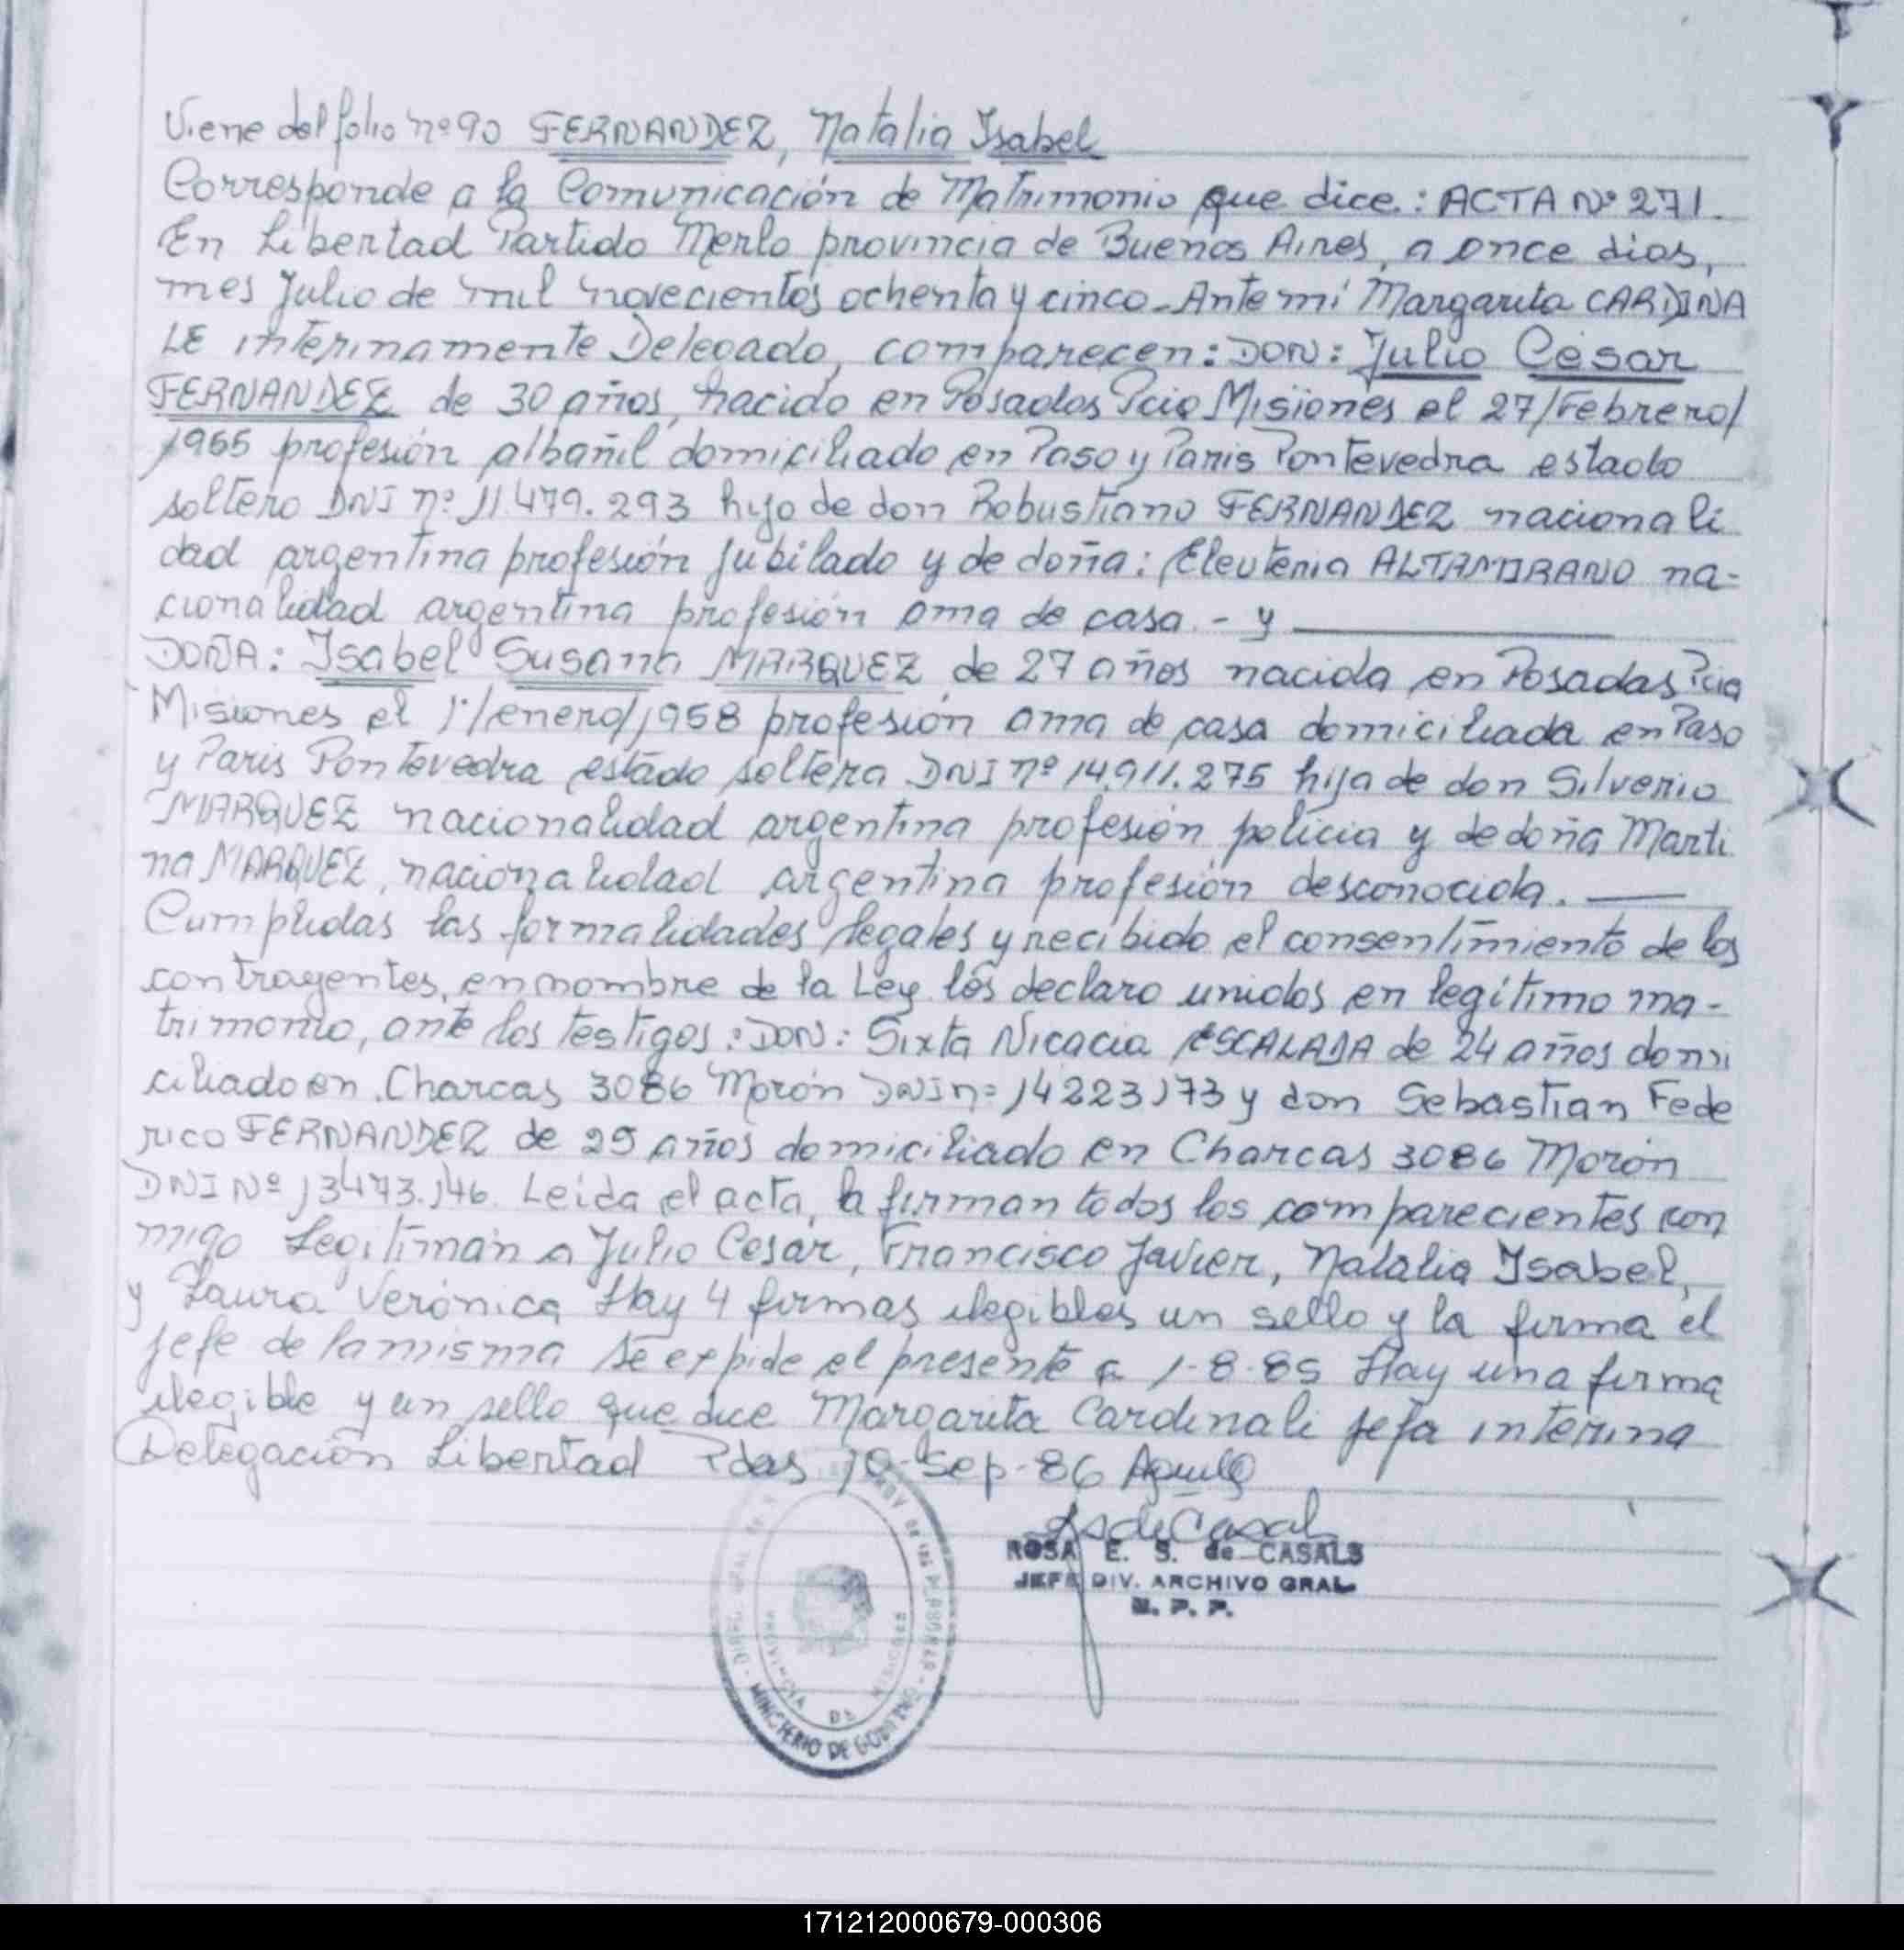 Viene del folio nº 90 FERNANDEZ, Natalia Isabel
Corresponde a la Comunicación de Matrimonio que dice: ACTA Nº 271.
En Libertad Partido Merlo provincia de Buenos Aires, a once dias,
mes Julio de mil novecientos ochenta y cinco - Ante mi Margarita CARDINA
LE interinamente Delegado, comparecen: DON: Julio César
FERNANDEZ de 30 años, nacido en Posadas Pcia Misiones el 27/Febrero/
1955 profesión albañil domiciliado en Paso y Paris Pontevedra estado
soltero DNI nº 11.479.293 hijo de don Robustiano FERNANDEZ nacionali
dad argentina profesión Jubilado y de doña: Eleuteria ALTAMIRANO na-
cionalidad argentina profesión ama de casa. - y
DOÑA: Isabel Susana MARQUEZ de 27 años nacida en Posadas Pcia
Misiones el 1º/enero/1958 profesión ama de casa domiciliada en Paso
y Paris Pontevedra estado soltera DNI nº 14.911.275 hija de don Silverio
MARQUEZ nacionalidad argentina profesión policia y de doña Marti
na MARQUEZ, nacionalidad argentina profesión desconocida.
Cumplidas las formalidades legales y recibido el consentimiento de los
contrayentes, en nombre de la Ley los declaro unidos en legítimo ma-
trimonio, ante los testigos: DON: Sixta Nicacia ESCALADA de 24 años domi
ciliado en Charcas 3086 Morón DNI nº 14223173 y don Sebastian Fede
rico FERNANDEZ de 25 años domiciliado en Charcas 3086 Morón
DNI Nº 13473.146. Leida el acta, la firman todos los comparecientes con
migo Legitiman a Julio Cesar, Francisco Javier, Natalia Isabel,
y Laura Verónica Hay 4 firmas ilegibles un sello y la firma el
jefe de la misma Se expide el presente a 1-8-85 Hay una firma
ilegible y un sello que dice Margarita Cardinali jefa interina
Delegación Libertad Pdas 10-Sep-86
ROSA E. S. de CASALS
JEFE DIV. ARCHIVO GRAL
R. P. P.
MINISTERIO DE GOBIERNO
PROVINCIA DE MISIONES
171212000679-000306